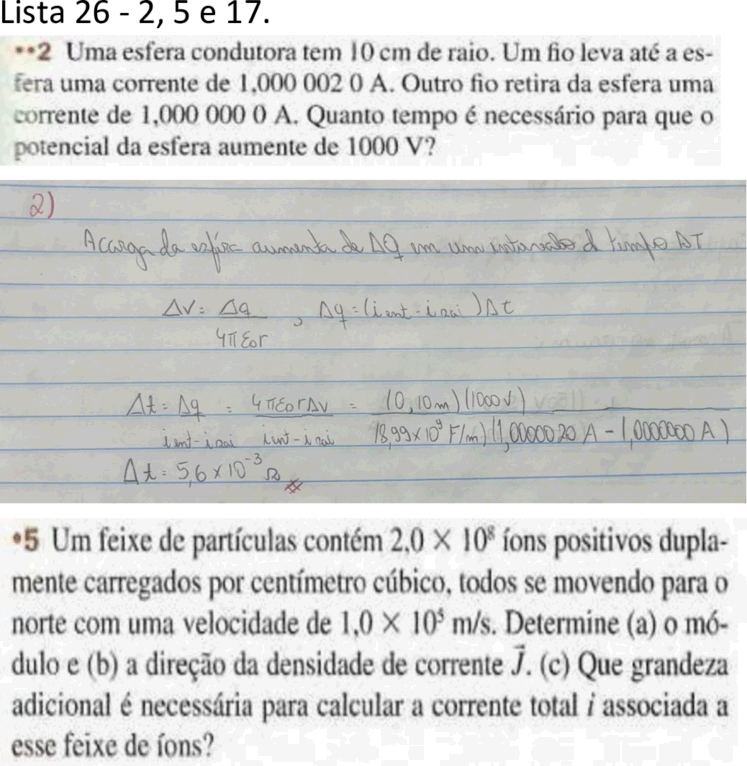 Lista 26 - 2, 5 e 17.
••2 Uma esfera condutora tem 10 cm de raio. Um fio leva até a es-
fera uma corrente de 1,000 002 0 A. Outro fio retira da esfera uma
corrente de 1,000 000 0 A. Quanto tempo é necessário para que o
potencial da esfera aumente de 1000 V?
2)
A carga da esfera aumenta de ΔQ em um intervalo d tempo ΔT
ΔV = Δq / 4πε0r , Δq = (i ent - i sai) Δt
Δt = Δq / i ent - i sai = 4πε0rΔV / i ent - i sai = (0,10m)(1000V) / (8,99×10⁹ F/m)(1,0000020 A - 1,0000000 A)
Δt = 5,6 × 10⁻³ s
•5 Um feixe de partículas contém 2,0 × 10⁸ íons positivos dupla-
mente carregados por centímetro cúbico, todos se movendo para o
norte com uma velocidade de 1,0 × 10⁵ m/s. Determine (a) o mó-
dulo e (b) a direção da densidade de corrente J⃗. (c) Que grandeza
adicional é necessária para calcular a corrente total i associada a
esse feixe de íons?